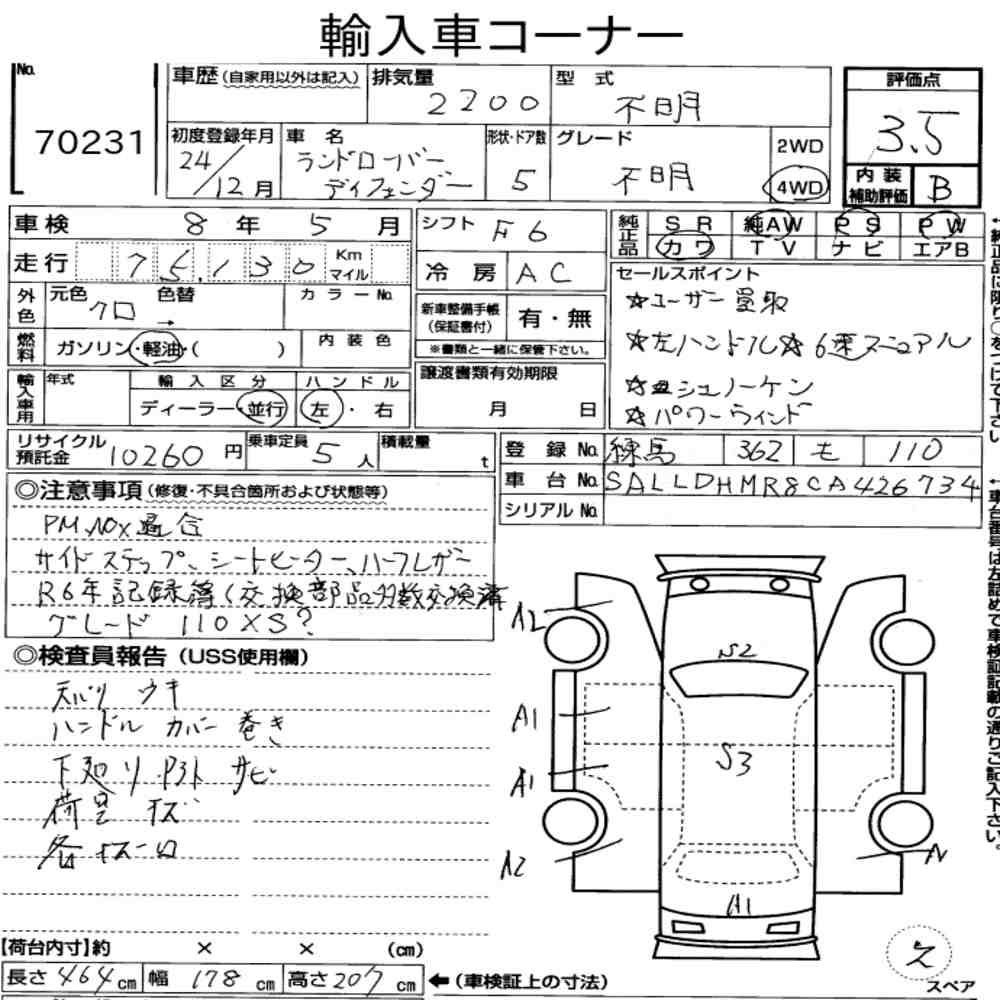 輸入車コーナー
No. 70231
車歴(自家用以外は記入)
排気量 2200
型 式 不明
評価点 3.5
内装補助評価 B
初度登録年月 24/12月
車 名 ランドローバー ディフェンダー
形状・ドア数 5
グレード 不明
2WD
4WD
車検 8年 5月
シフト F6
純正品 SR 純AW PS PW
カワ TV ナビ エアB
走行 75,130 Km マイル
冷房 AC
セールスポイント
☆ユーザー買取
☆左ハンドル☆6速マニュアル
シュノーケン
☆パワーウィンド
外色 元色 クロ 色替 → カラーNo.
新車整備手帳(保証書付) 有・無
※書類と一緒に保管下さい。
燃料 ガソリン・軽油・( ) 内装色
輸入車用 年式 輸入区分 ハンドル
ディーラー・並行 左・右
譲渡書類有効期限
月 日
リサイクル預託金 10260円
乗車定員 5人
積載量 t
登録No. 練馬 362 モ 110
車台No. SALLDHMR8CA426734
シリアルNo.
◎注意事項(修復・不具合箇所および状態等)
PM、NOx適合
サイドステップ、シートヒーター、ハーフレザー
R6年記録簿(交換部品多数交換済
グレード 110XS?
◎検査員報告(USS使用欄)
天バリ ウキ
ハンドル カバー 巻き
下廻り サビ
荷室 キズ
各キズ凹
A2
S2
A1
S3
A1
A2
A1
スペア
【荷台内寸】約 × × (cm)
長さ464cm 幅178cm 高さ207cm ←(車検証上の寸法)
←純正品に限り○をつけて下さい
←車台番号は左詰めで車検証記載の通りご記入下さい。